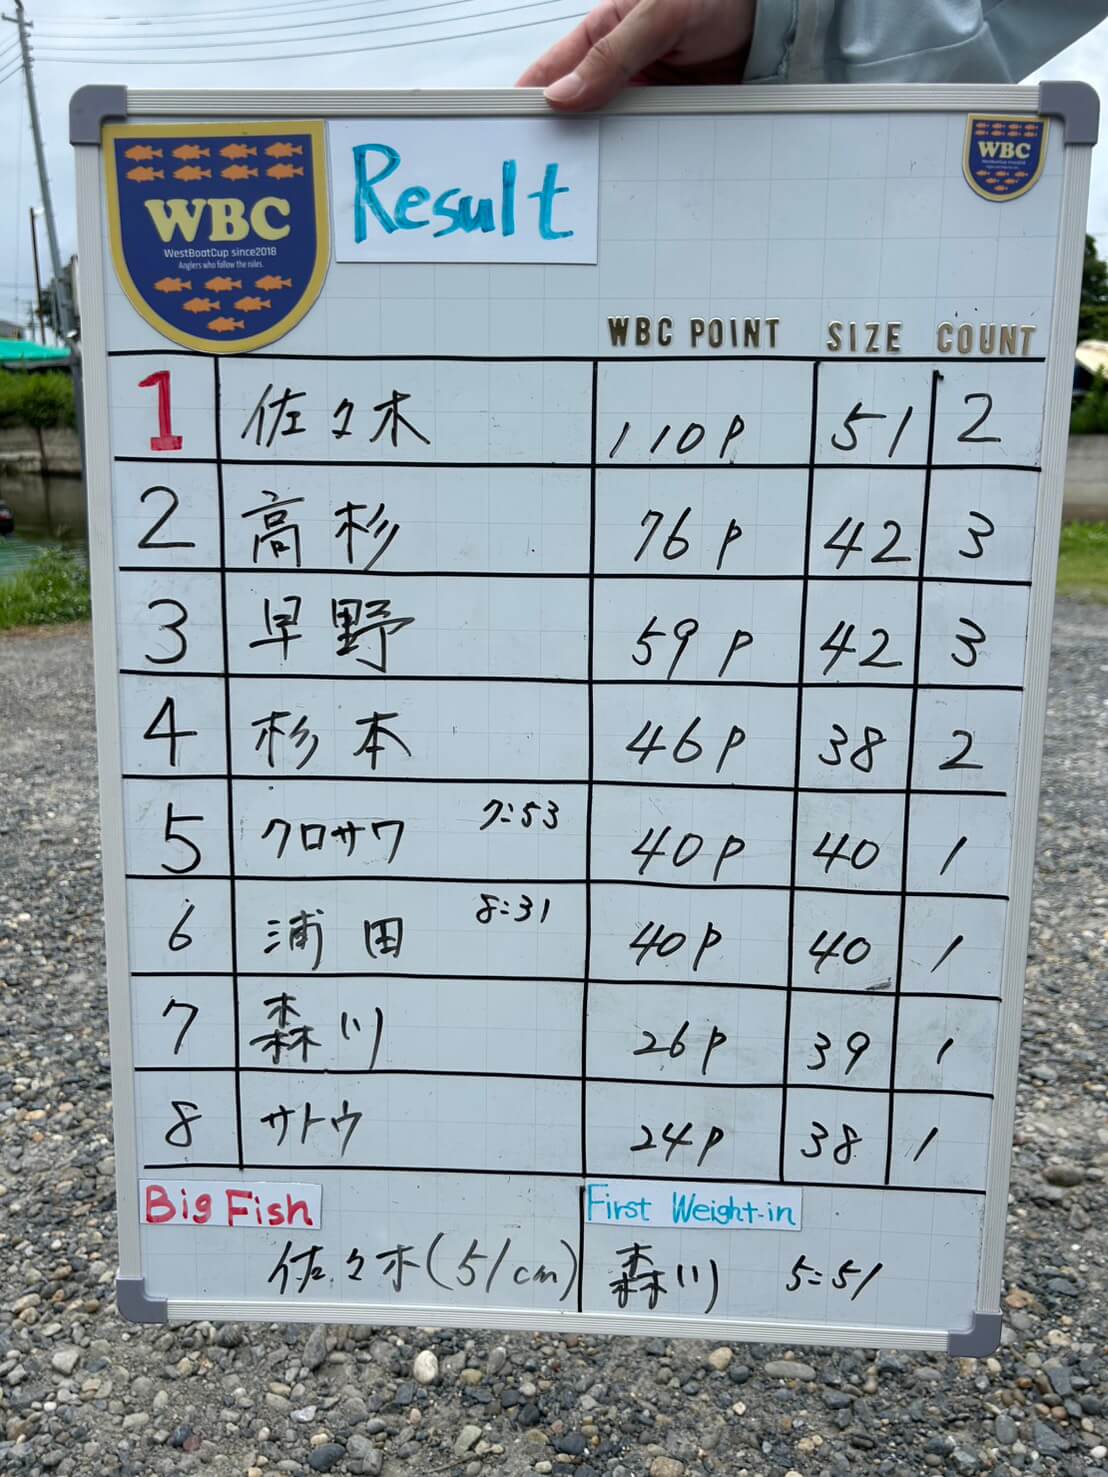 WBC
WestBoatCup since2018
Anglers who follow the rules.
Result
WBC
WBC POINT SIZE COUNT
1 佐々木 110P 51 2
2 高杉 76P 42 3
3 早野 59P 42 3
4 杉本 46P 38 2
5 クロサワ 7:53 40P 40 1
6 浦田 8:31 40P 40 1
7 森川 26P 39 1
8 サトウ 24P 38 1
Big Fish
佐々木(51cm)
First Weight-in
森川 5:51